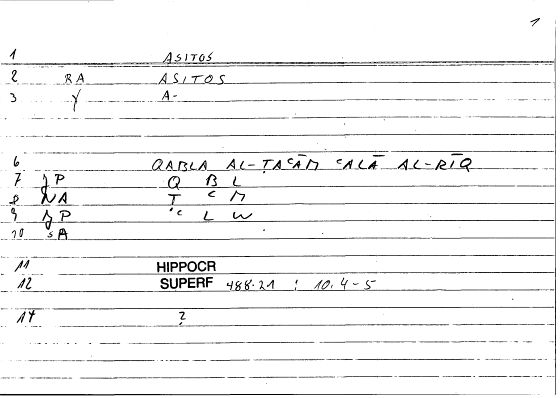 1
1 ASITOS
2 RA ASITOS
3 Y A-
6 QABLA AL-ṬAʿĀM ʿALĀ AL-RĪQ
7 P Q B L
8 NA Ṭ ʿ M
9 P ʿ L W
10 sA
11 HIPPOCR
12 SUPERF 488.21 : 10.4-5
17 ?